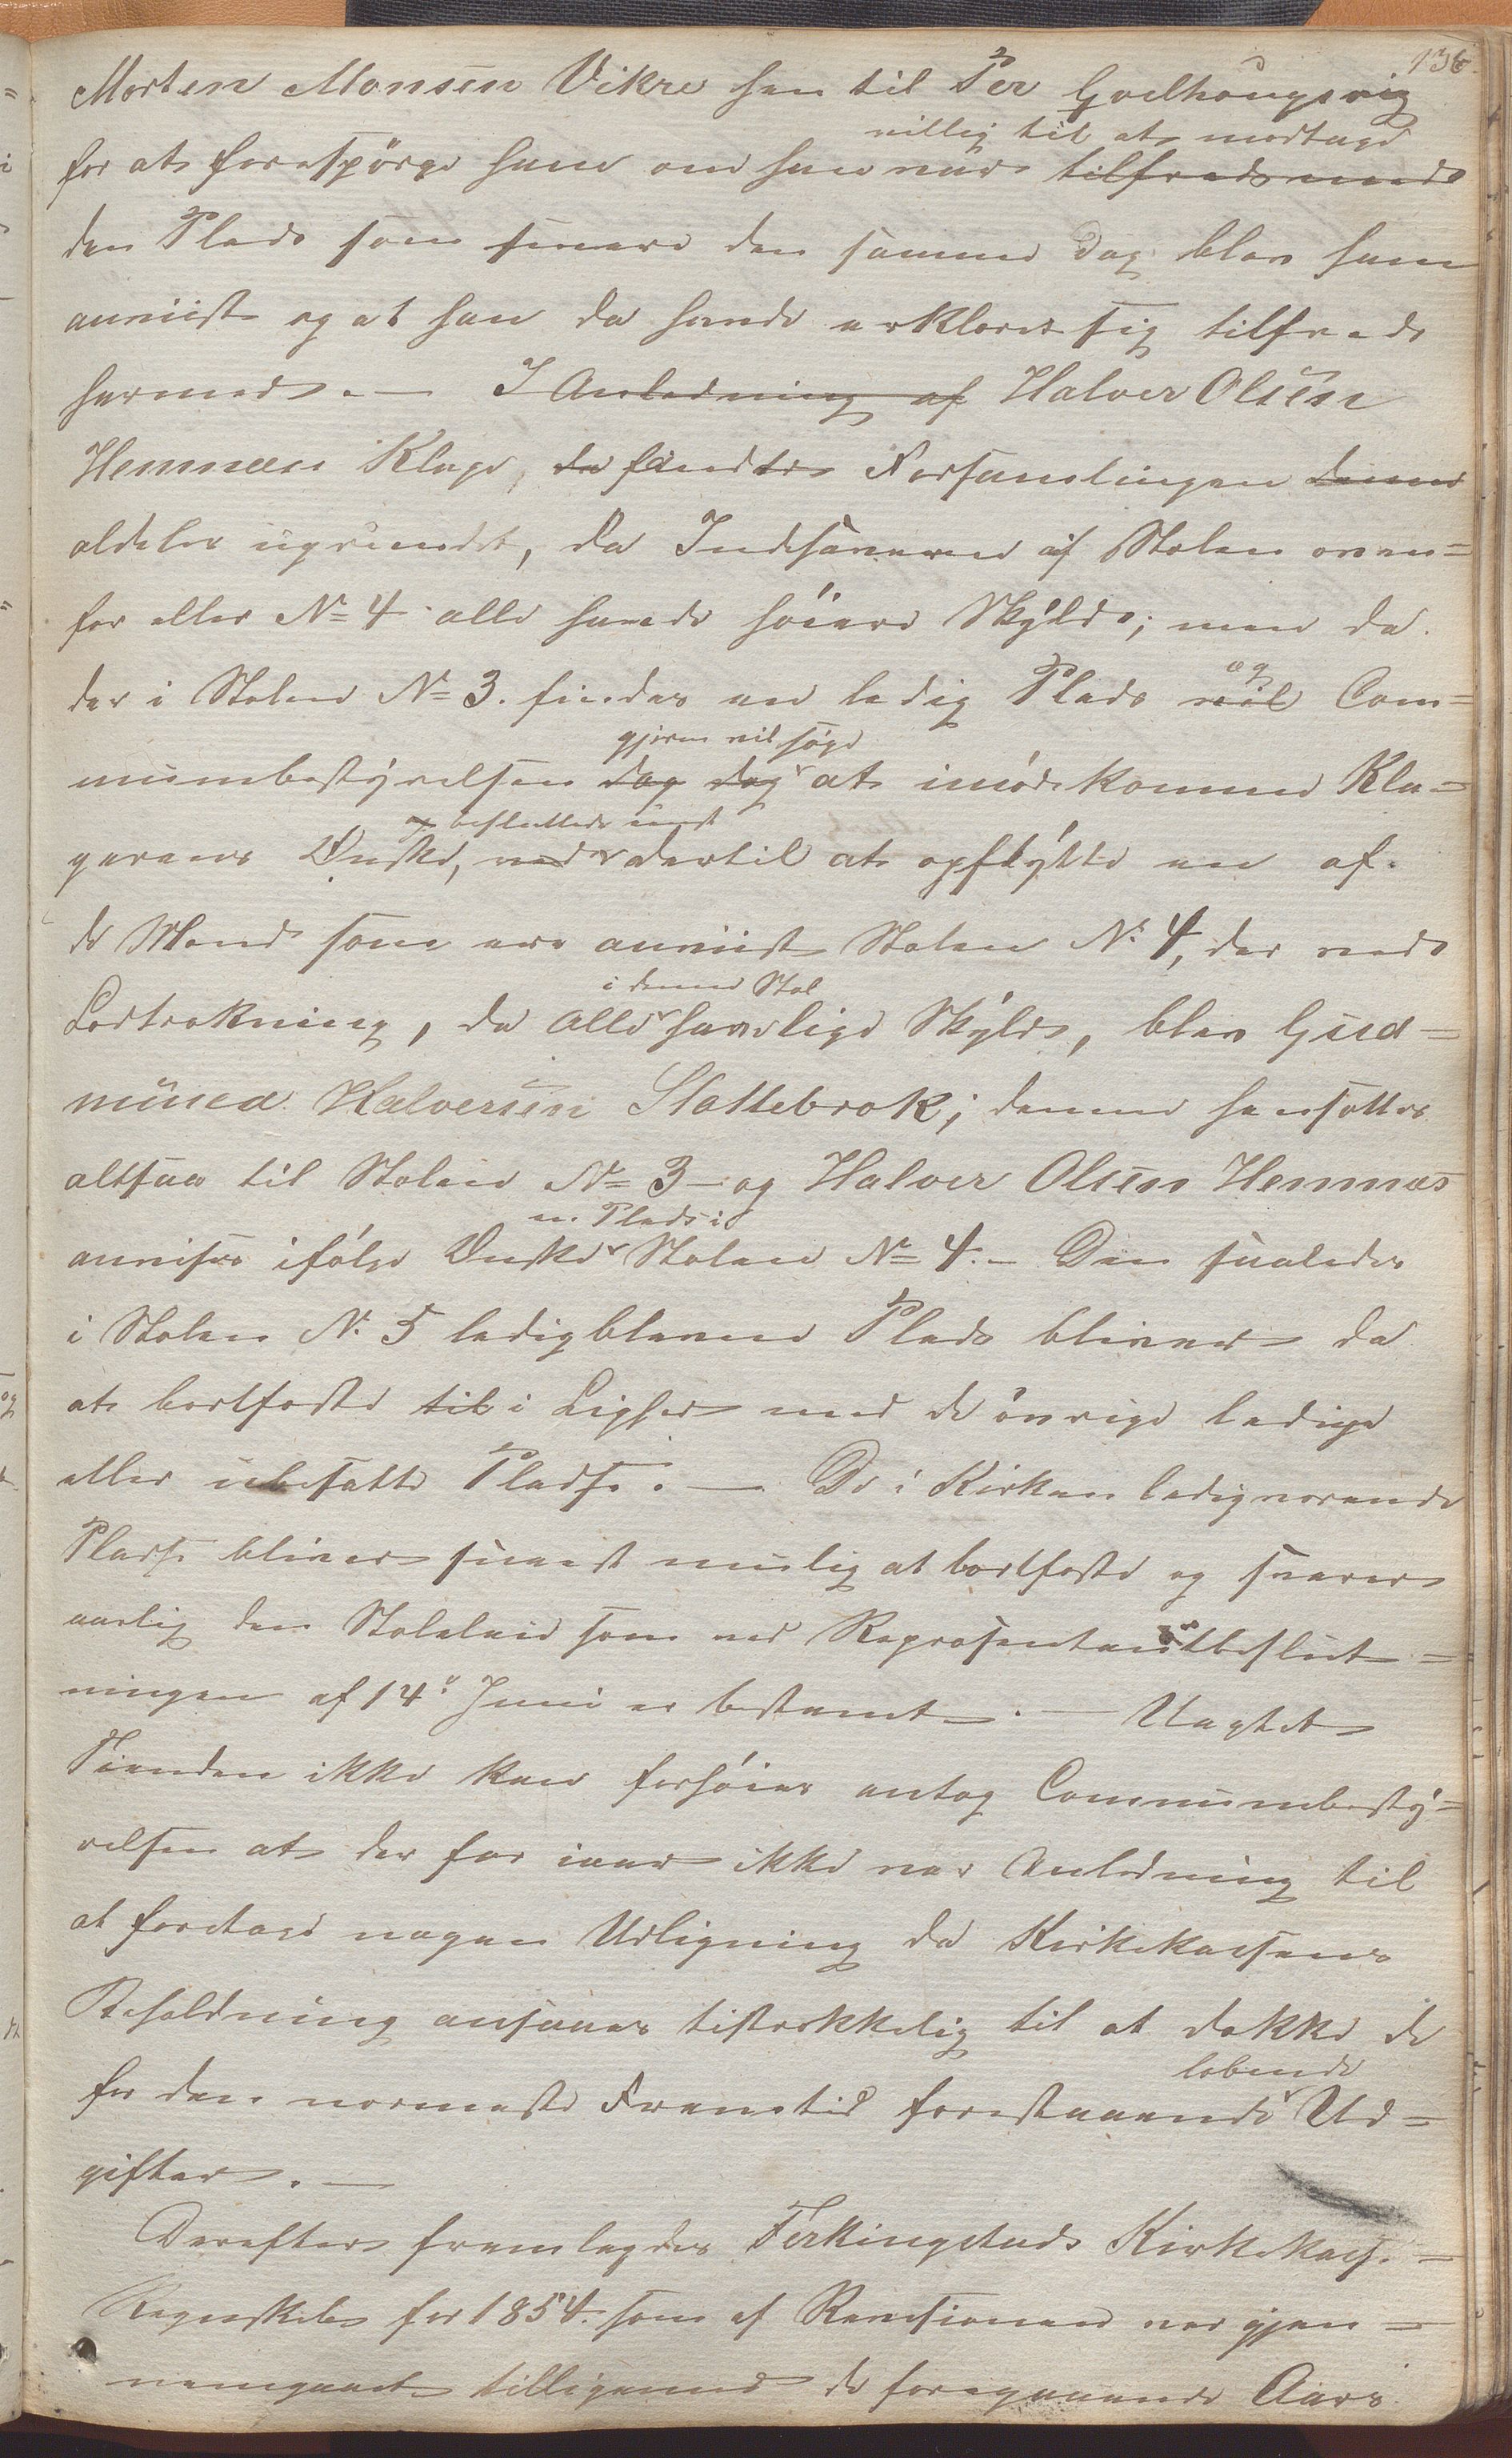 136
Morten Monsen Vikre hen til Per Godhougsvig
villig til at modtage
for at forespörge ham om han var tilfreds med
den Plads som senere den samme Dag blev ham
anviist og at han da havde erklæret sig tilfreds
hermed. — I Anledning af Halvor Olsen
Hemnæs Klage, da fandtes Forsamlingen denne
aldeles ugrundet, da Indehaverne af Stolen oven=
for eller No 4 alle havde höiere Skyld; men da
der i Stolen No 3. findes en ledig Plads og vil Com=
gjerne vil söge
munebestyrelsen dog dog at imödekomme Kla=
og besluttede
gerens Önske, ved dertil at opflytte en af
de Mænd som ere anviist Stolen No 4, der ved
i denne Stol
Lodtrækning, da alle havde lige Skyld, blev Gud=
mund Halvorsen Slattebræk; denne hensættes
altsaa til Stolen No 3 og Halvor Olsen Hemnæs
en Plads i
anvises ifölge Önske Stolen No 4. — Den saaledes
i Stolen No 5 ledigblevne Plads bliver da
at bortfæste til i Lighed med de övrige ledige
eller ubesatte Pladse. — De i Kirken ledigværende
Pladse bliver snarest mulig at bortfæste og svarer
aarlig den Stoleleie som ved Repræsentantbeslut=
ningen af 14de Juni er bestemt. — Uagtet
Tienden ikke kan forhöies antog Communebesty=
relsen at der for iaar ikke var Anledning til
at foretage nogen Udligning da Kirkekassens
Beholdning ansaaes tilstrækkelig til at dække de
löbende
for den nærmeste Fremtid forestaaende Ud=
gifter. —
Derefter fremlagdes Ferkingstads Kirkekasse=
Regnskab for 1854 som af Revisionen var gjen=
nemgaaet tilligemed de foregaaende Aars